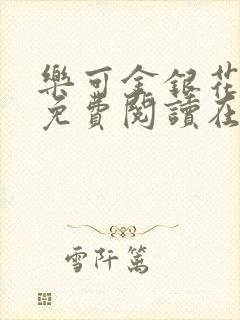 樂可金銀花
免費閱讀在
雪阡篱